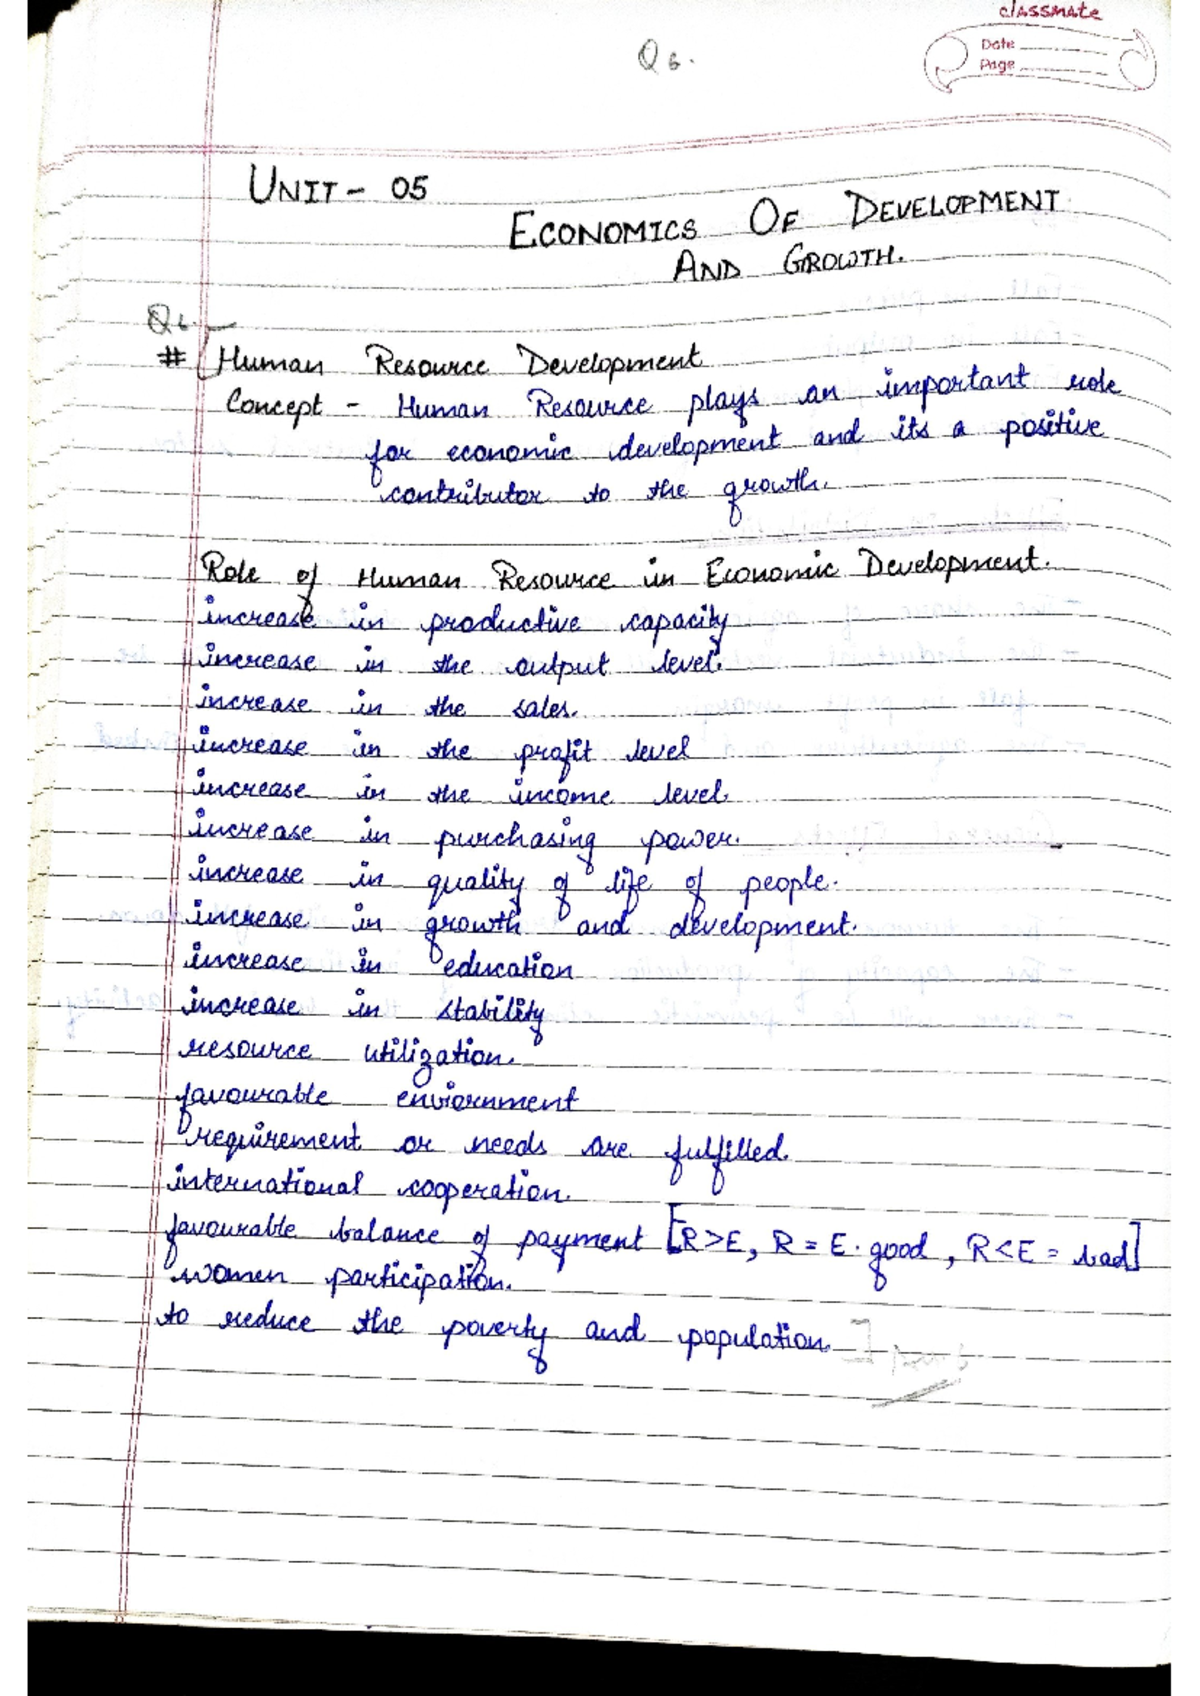 classmate
Date
Page
Q6.
UNIT - 05
ECONOMICS OF DEVELOPMENT
AND GROWTH.
Q6. -
# Human Resource Development
Concept - Human Resource plays an important role
for economic development and its a positive
contributor to the growth.
Role of Human Resource in Economic Development.
increase in productive capacity
increase in the output level.
increase in the sales.
increase in the profit level
increase in the income level.
increase in purchasing power.
increase in quality of life of people.
increase in growth and development.
increase in education
increase in stability
resource utilization.
favourable enviornment
requirement or needs are fulfilled.
international cooperation.
favourable balance of payment [R>E, R = E. good, R<E = bad]
women participation.
to reduce the poverty and population.